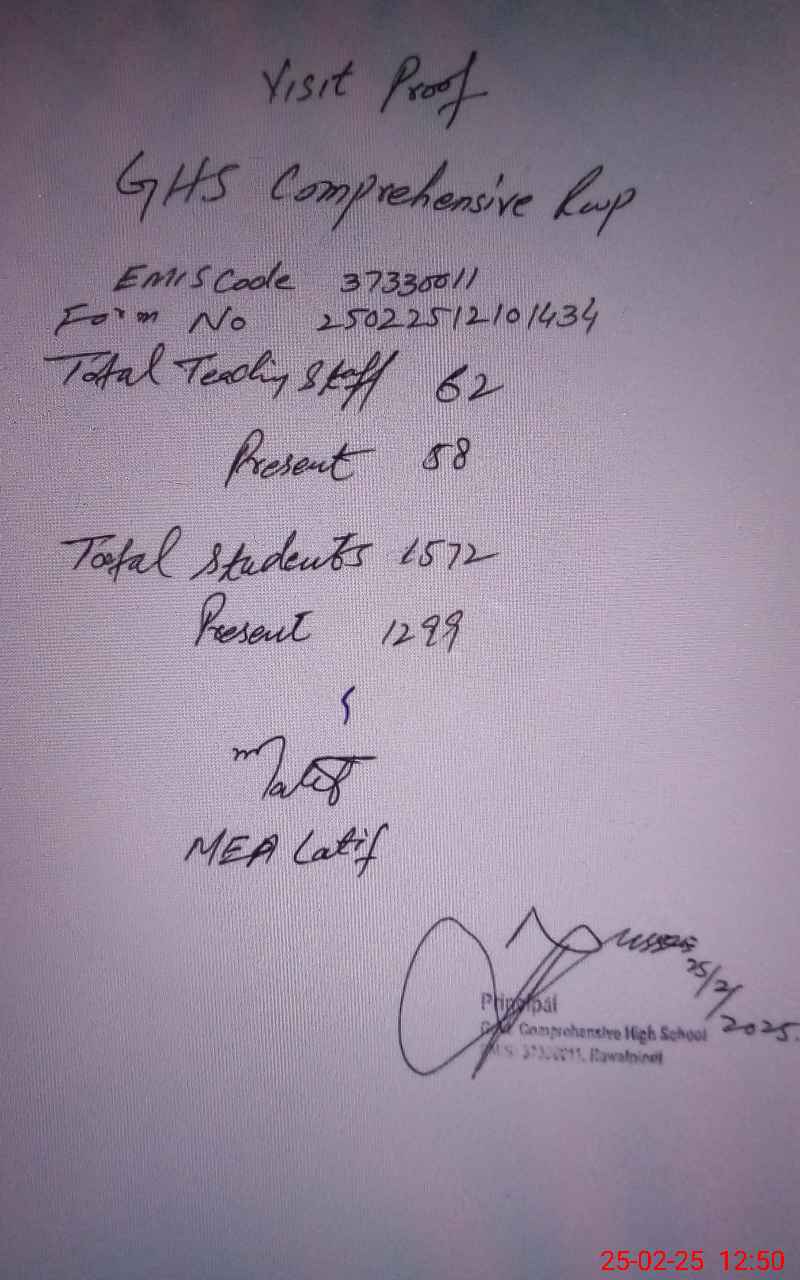 Visit Proof
GHS Comprehensive Rwp
EMIS Code 37330011
Form No 25022512101434
Total Teaching Staff 62
Present 58
Total Students 1572
Present 1299
MLatif
MEA Latif
25/2/2025.
Principal
Comprehensive High School
37330011, Rawalpindi
25-02-25 12:50